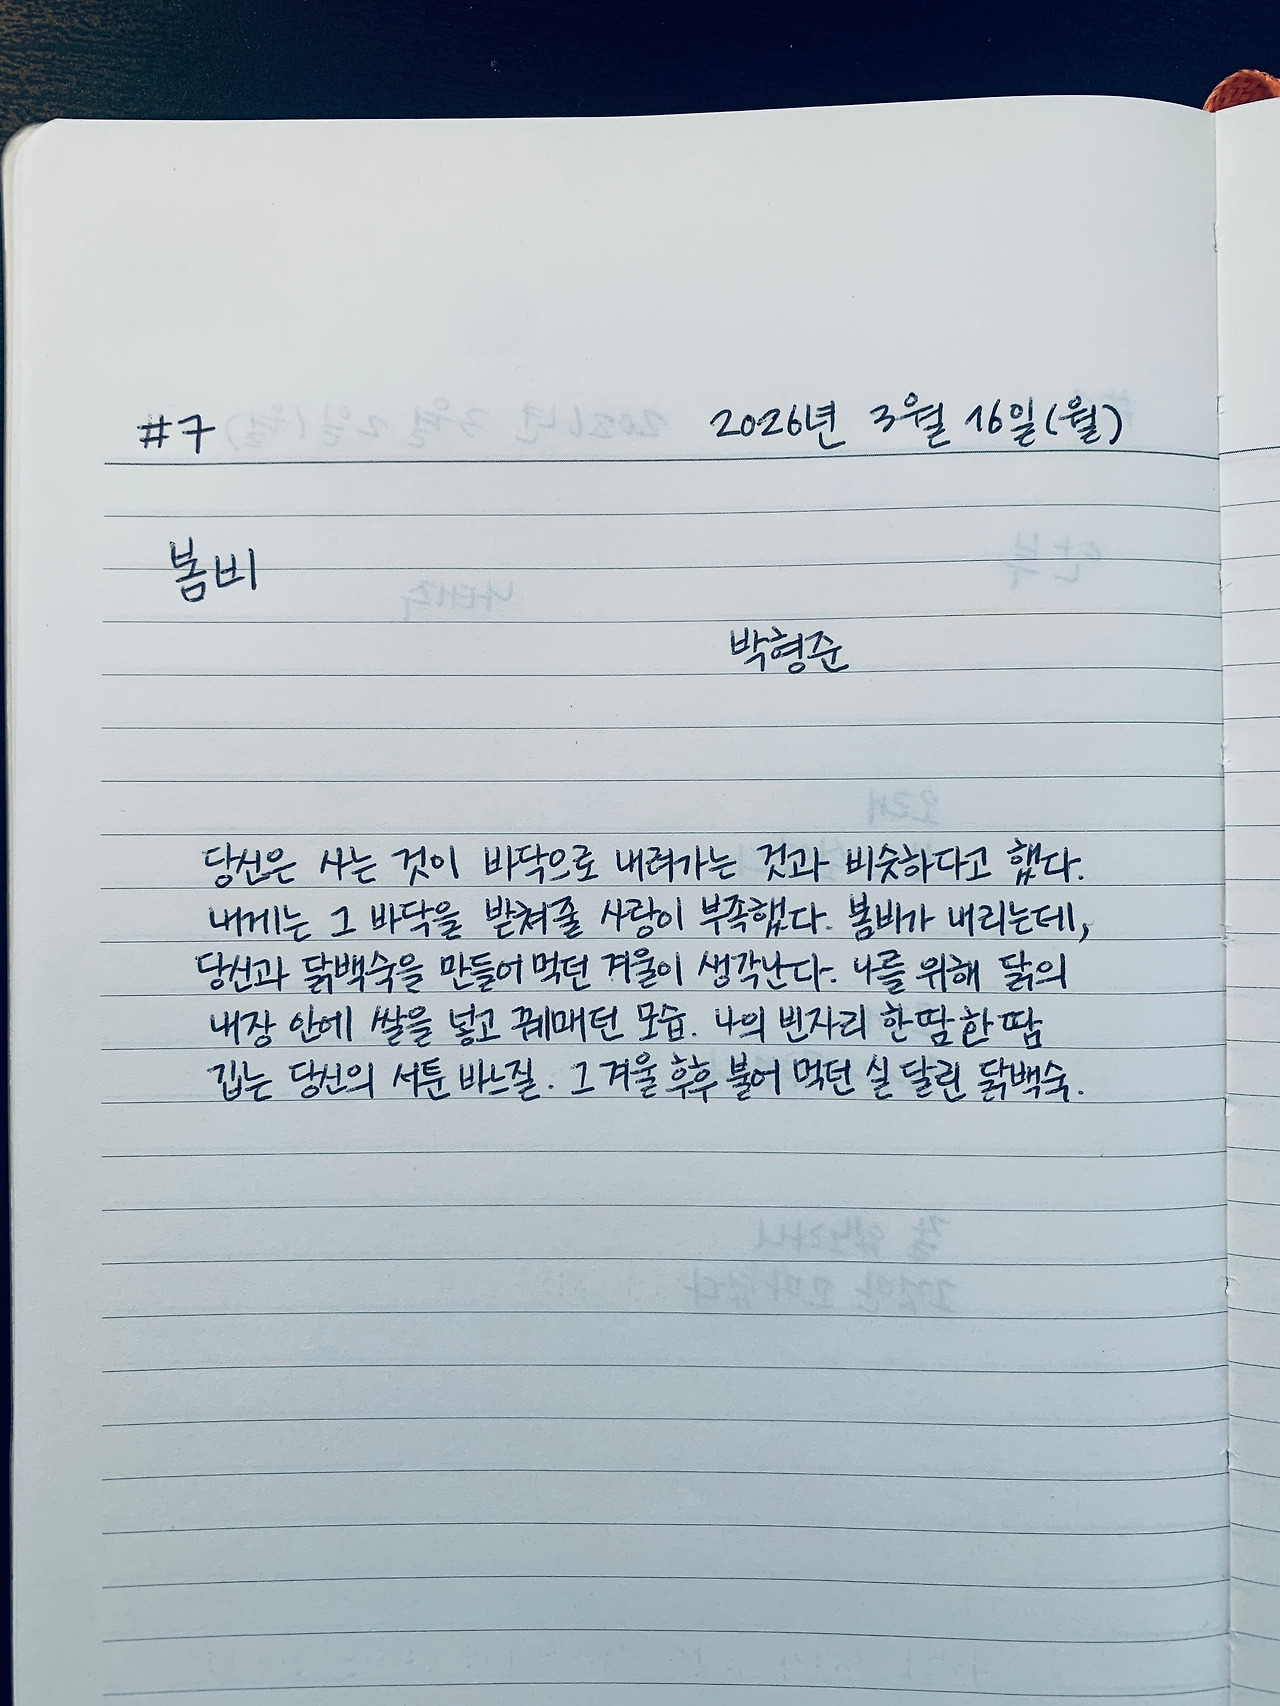 #7 2026년 3월 16일(월)
봄비
박형준
당신은 사는 것이 바닥으로 내려가는 것과 비슷하다고 했다.
내게는 그 바닥을 받쳐줄 사랑이 부족했다. 봄비가 내리는데,
당신과 닭백숙을 만들어 먹던 겨울이 생각난다. 나를 위해 닭의
내장 안에 쌀을 넣고 꿰매던 모습. 나의 빈자리 한땀한땀
깁는 당신의 서툰 바느질. 그 겨울 후후 불어 먹던 실 달린 닭백숙.